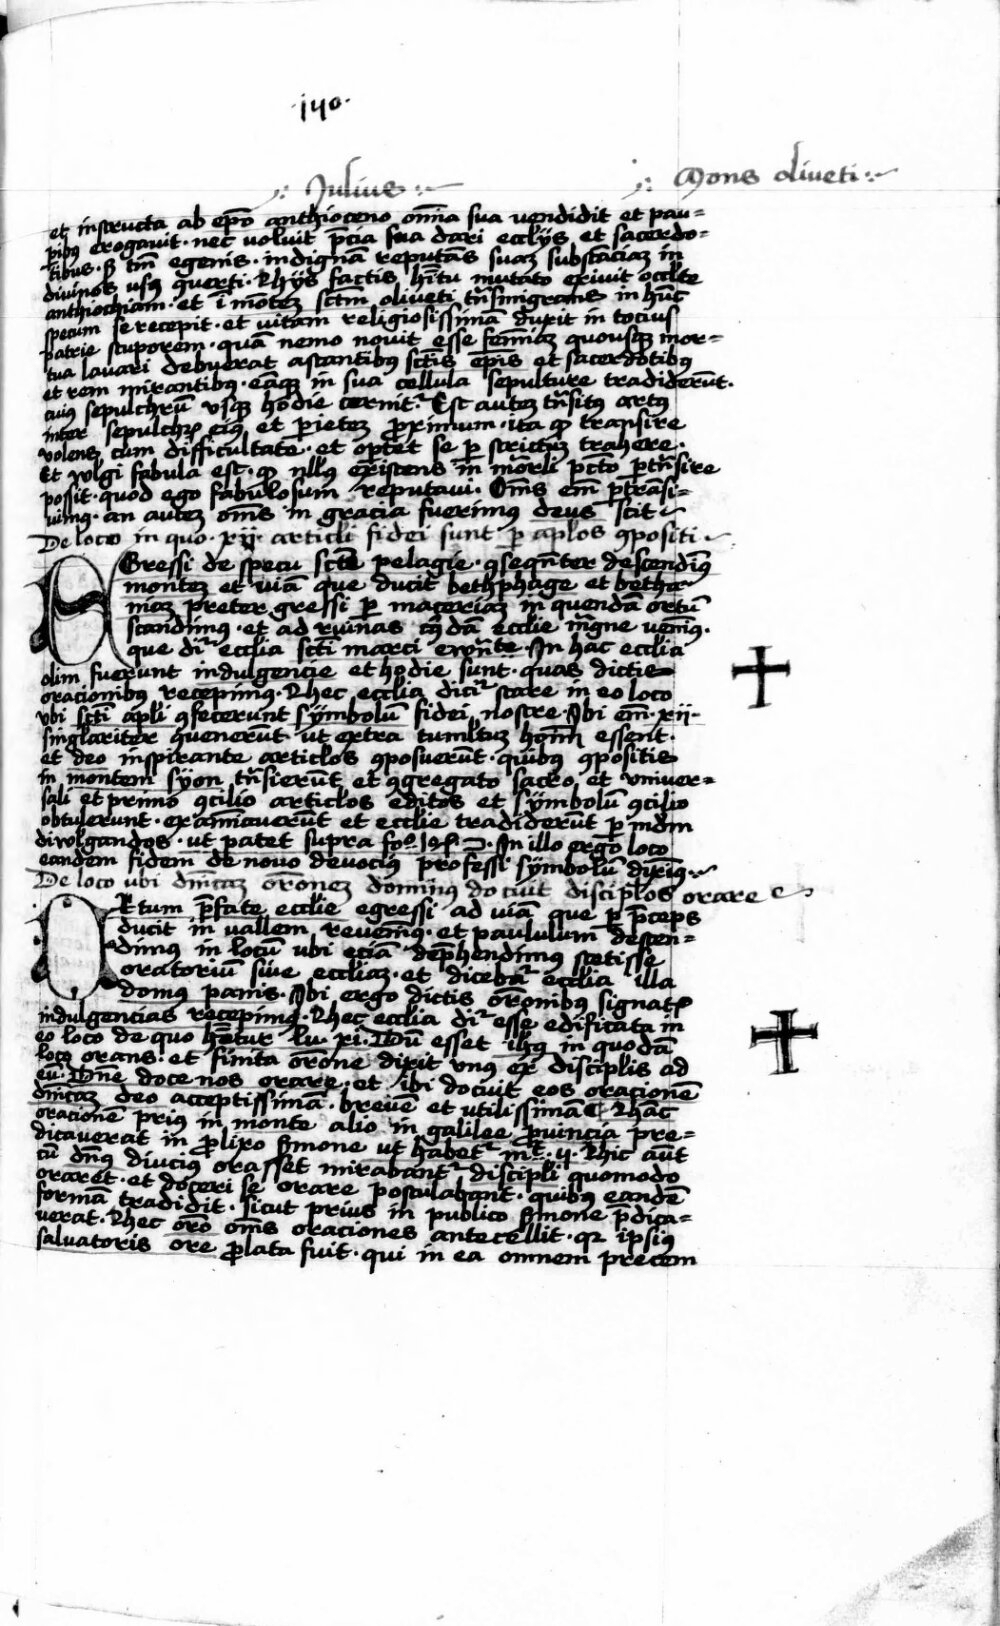 ·140·
Julius
Mons oliveti
et instructa ab epo anthioceno omnia sua vendidit et pau=
pibus erogavit · nec voluit pcia sua dari ecclijs et sacerdo=
tibus · s tm egenis · indignam reputans suam substanciam in
divinos usus queri · Rhijs factis hitu mutato exivit occlte
anthiochiam · et i montem sctm oliveti tnsmigrans in hunc
specum se recepit · et vitam religiosissimam duxit in tocius
patrie stuporem · quam nemo novit esse feminam quousque mor=
tua lavari debuerat astantibus sctis epis et sacerdotibus
et rem mirantibus · eamque in sua cellula sepulture tradiderunt ·
cuius sepulchrum usque hodie cernitur Est autem tnsitus artus
inter sepulchrum eius et parietem proximum · ita quod transire
volens cum difficultate · et optet se per strictum trahere ·
Et wlgi fabula est · quod nullus existens in mortli pcto ptnsire
possit · quod ego fabulosum reputavi · Oms em ptransi=
vimus · an autem oms in gracia fuerimus deus scit
De loco in quo · xij · articli fidei sunt per aplos compositi
Egressi de specu scte pelagie · consequenter descendimus
montem et viam que ducit bethphage et betha=
niam preter gressi per maceriam in quendam ortum
scandimus · et ad ruinas cuiusdam ecclie ingne venimus ·
que dicitur ecclia scti marci ewnte · In hac ecclia
olim fuerunt indulgencie et hodie sunt · quas dictis
oracionibus recepimus · Rhec ecclia dicitur stare in eo loco
ubi scti apli confecerunt symbolum fidei nostre · Ibi em · xij ·
singlariter convenerunt ut extra tumultum hominum essent ·
et deo inspirante articlos composuerunt · quibus compositis
in montem syon tnsierunt et congregato sacro et univer=
sali et primo concilio articlos editos et symbolum concilio
obtulerunt · examinaverunt et ecclie tradiderunt per mdm
divulgandos · ut patet supra fo In illo ergo loco
eandem fidem de novo devocius professi symbolum diximus
De loco ubi dnicam oronem dominus docuit disciplos orare
Ortum pfate ecclie egressi ad viam que per pceps
ducit in vallem revenimus · et paululum descen=
dimus in locum ubi eciam dephendimus stetisse
oratorium sive eccliam · et dicebatur ecclia illa
domus panis · Ibi ergo dictis oronibus signatas
indulgencias recepimus · Rhec ecclia dicitur esse edificata in
eo loco de quo habetur lu · xi · Dum esset ihus in quodam
loco orans · et finita orone dixit unus ex disciplis ad
eum · Dne doce nos orare · et ibi docuit eos oracionem
dnicam deo acceptissimam · brevem et utilissimam Rhanc
oracionem prius in monte alio in galilee provincia pre=
dicaverat in prolixo sermone ut habetur mt · Rhic aut
cum dnus diucius orasset mirabantur discipli quomodo
oraret · et doceri se orare postulabant · quibus eandem
formam tradidit · sicut prius in publico sermone pdica=
verat · Rhec oro oms oraciones antecellit · quia ipsius
salvatoris ore plata fuit · qui in ea omnem precem